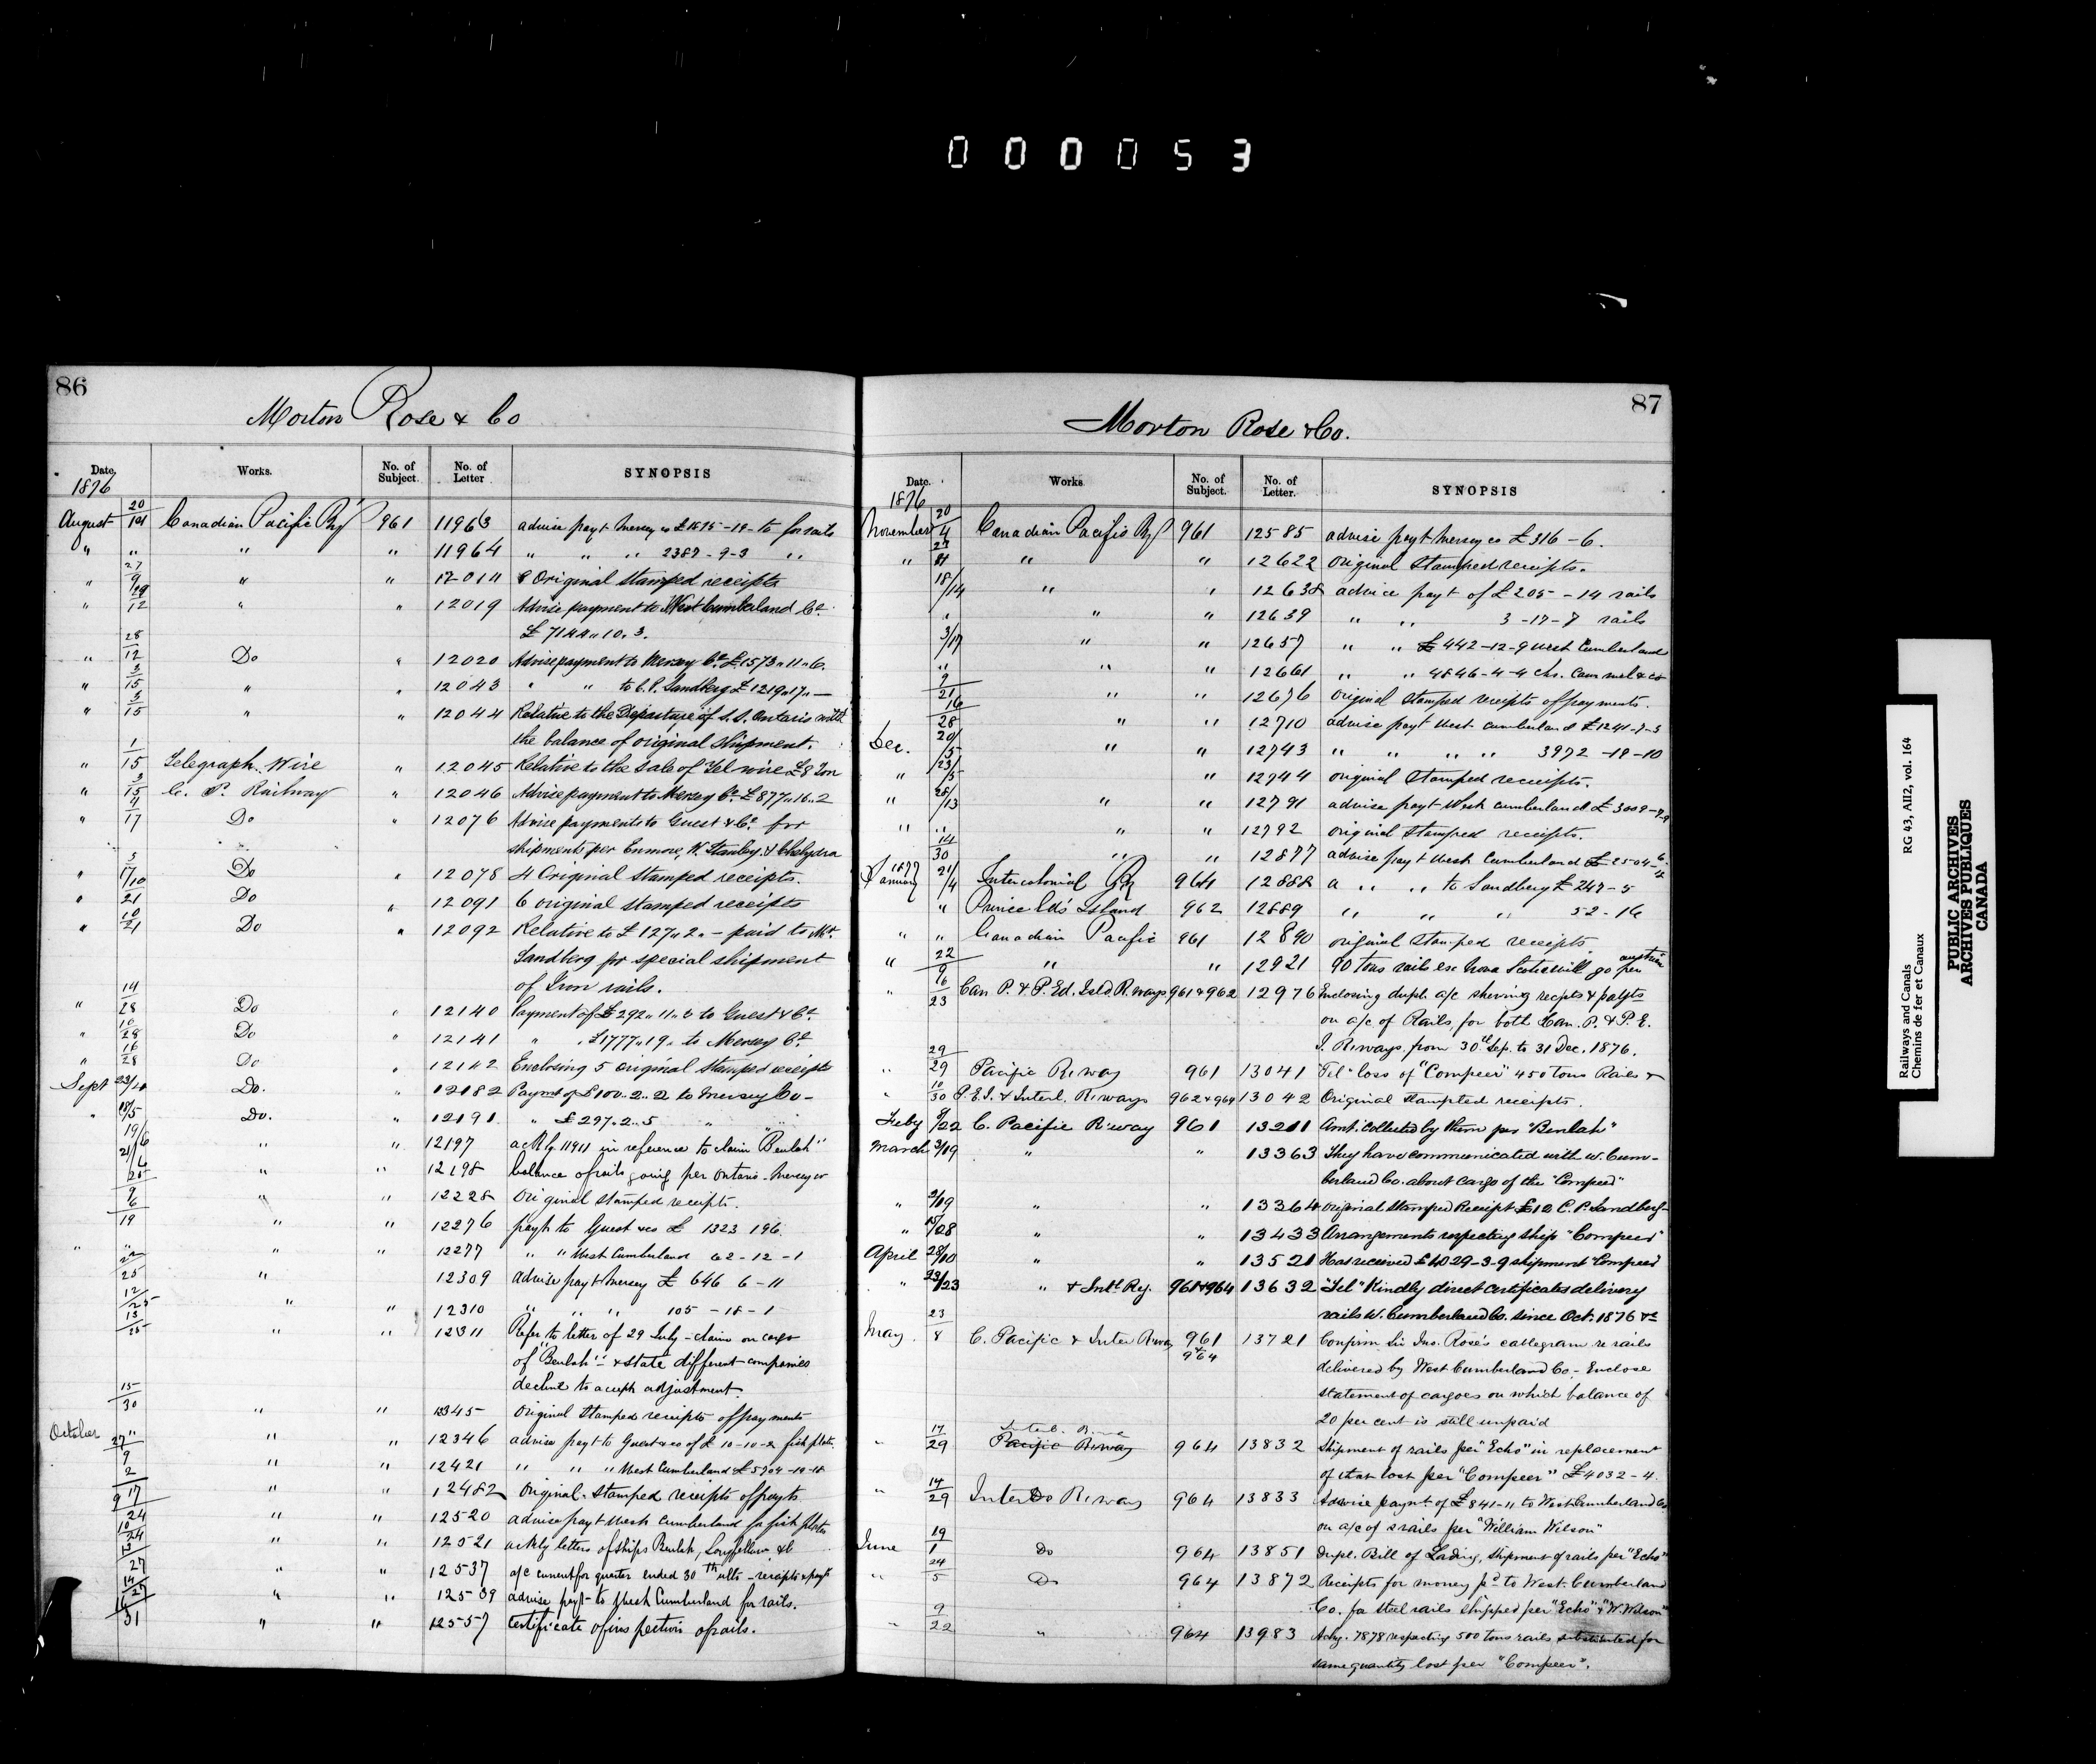 000053
86
Morton Rose & Co
Date. Works. No. of Subject. No. of Letter. SYNOPSIS
1876
August 20/ Canadian Pacific Ry 961 11963 advise payt Mersey co for rails
" " " " 11964 " " " 2387-9-3 "
" 27/9 " " 12014 Original Stamped receipts
" 29/12 " " 12019 Advise payment to West Cumberland Co.
£7144,,10,,3.
" 28/12 Do " 12020 Advise payment to Mersey Co. £1573,,11,,6.
" 3/15 " " 12043 " " to C.P. Sandberg £1219,,17,,—
" 3/15 " " 12044 Relative to the Departure of S.S. Ontario with
the balance of original shipment.
" 1/15 Telegraph Wire " 12045 Relative to the sale of Tel wire £8 Ton
" 3/15 C. P. Railway " 12046 Advise payment to Mersey Co. £877,,16,,2
" 4/17 Do " 12076 Advise payments to Guest & Co. for
shipments per Enmore, W. Stanley, &
" Do " 12078 4 Original Stamped receipts.
" 21 Do " 12091 6 original stamped receipts
" 10/21 Do " 12092 Relative to £127,,2,,— paid to Mr.
Sandberg for special shipment
of Iron rails.
" 14/28 Do " 12140 Payment of £292,,11,,0 to Guest & Co.
" 16/28 Do " 12141 " £1777,,19,, to Mersey Co.
" 16/28 Do " 12142 Enclosing 5 original stamped receipts
Sept Do. " 12182 Paymt of £100..2..2 to Mersey Co—
" 18/5 Do. " 12191 " £297..2..5 " "
19/6 " " 12197 ackg 11911 in reference to claim "Beulah"
" " 12198 balance of rails going per Ontario - Mersey co
" " 12228 Original stamped receipts.
19 " " 12276 payt to Guest & co £ 1323 196
" " " " 12277 " " West Cumberland 62-12-1
25 " 12309 advise payt Mersey £ 646 6-11
12/25 " " 12310 " " " 105-18-1
13/25 " " 12311 Refer to letter of 29 July - claim on cargo
of "Beulah" & state different companies
decline to accept adjustment.
15/30 " " 12345 Original Stamped receipts of payments
October " " " 12346 advise payt to Guest & co of £10-10-2 fish plate.
" " 12421 " " " West Cumberland
17 " " 12482 Original Stamped receipts of payts
24 " " 12520 advise payt West Cumberland for fish plates
24 " " 12521 ackg letters of ships Beulah, Longfellow, &c
27 " " 12537 a/c current for quarter ended 30th ulto - receipts & payts
27 " " 12539 advise payt to West Cumberland for rails.
31 " " 12557 Certificate of inspection of rails.
87
Morton Rose & Co.
Date. Works. No. of Subject. No. of Letter. SYNOPSIS
1876
November 20/4 Canadian Pacific Ry 961 12585 advise payt Mersey co £316-6.
" " " 12622 Original Stamped receipts.
18/14 " " 12638 advice payt of £205-14 rails
" " 12639 " " 3-17-8 rails
3/17 " " 12657 " " £442-12-9 West Cumberland
" " " 12661 " " 4846-4-4 Chs. Cammel & co
9/21 " " 12676 Original Stamped receipts of payments.
16/28 " " 12710 advise payt West Cumberland £1241-7-3
Dec. 20/5 " " 12743 " " " " 3972-19-10
" 23/5 " 12744 original Stamped receipts.
" 28/13 " " 12791 advise payt West Cumberland
" " " " 12792 original Stamped receipts.
14/30 " " 12877 advise payt West Cumberland
1877
January 21/4 Intercolonial Ry 964 12888 a " " to Sandberg £247-5
" Prince Ed's Island 962 12889 " " " 52-16
" " Canadian Pacific 961 12890 original stamped receipts
" 22/9 " " 12921 90 tons rails ex Nova Scotia will go per austrian
" 16/23 Can P. & P. Ed. Isld R.ways 961 & 962 12976 Enclosing dupl. a/c shewing recpts & paymts
on a/c of Rails, for both Can. P. & P. E.
I. R.ways. from 30th Sep. to 31 Dec. 1876.
" 29/29 Pacific R.way 961 13041 "Tel" loss of "Compeer" 450 tons Rails &
" 10/30 P.E.I. & Interl. R.ways 962 & 964 13042 Original Stampted receipts.
Feby 8/22 C. Pacific R.way 961 13211 Amt. collected by them per "Beulah"
March 3/19 " " 13363 They have communicated with W. Cum-
berland Co. about cargo of the "Compeer"
" 3/19 " " 13364 Original Stamped Receipt £12 C. P. Sandberg
" 15/28 " " 13433 Arrangements respecting ship "Compeer"
April 28/10 " " 13521 Has received £4029-3-9 shipment "Compeer"
" 23/23 " & Intl Ry. 961 & 964 13632 "Tel" Kindly direct certificates delivery
rails W. Cumberland Co. since Oct. 1876 &c
May 23/8 C. Pacific & Inter R.way 961 & 964 13721 Confirm Sir Jno. Rose's cablegram re rails
delivered by West Cumberland Co. - Enclose
statement of cargoes on which balance of
20 per cent is still unpaid
" 17/29 Interl. R.way Pacific R.way 964 13832 Shipment of rails per "Echo" in replacement
of that lost per "Compeer" £4032-4.
" 14/29 Inter Do R.way 964 13833 Advise paymt. of £841-11 to West Cumberland Co
on a/c of rails per "William Wilson"
June 19/1 Do 964 13851 Dupl. Bill of Lading, shipment of rails per "Echo"
" 24/5 Do 964 13872 Receipts for money pd to West. Cumberland
Co. for Steel rails shipped per "Echo" & "W. Wilson"
" 9/22 " 964 13983 Ackg. 7878 respecting 500 tons rails substituted for
same quantity lost per "Compeer".
Railways and Canals RG 43, AII2, vol. 164
Chemins de fer et Canaux
PUBLIC ARCHIVES
ARCHIVES PUBLIQUES
CANADA